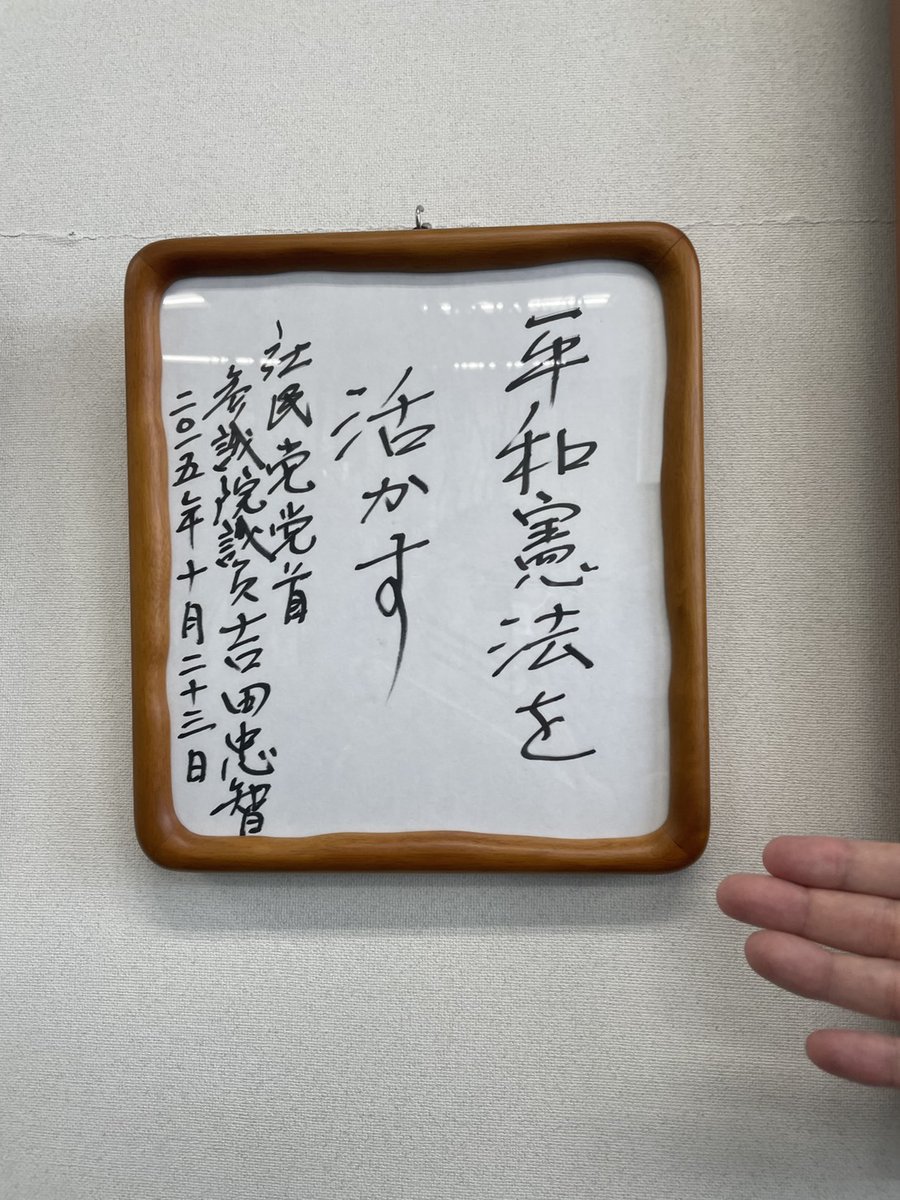 平和憲法を
活かす
社民党党首
参議院議員吉田忠智
二〇一五年十月二十三日